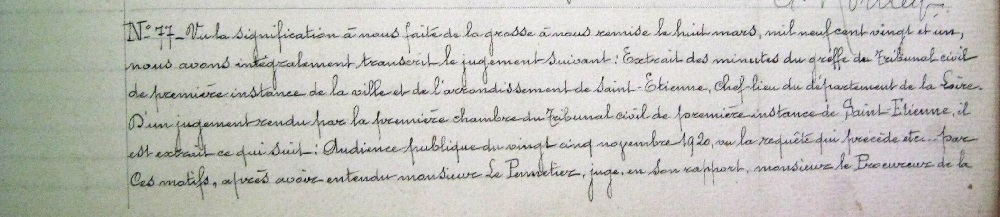 N° 77 - Vu la signification à nous faite de la grosse à nous remise le huit mars, mil neuf cent vingt et un,
nous avons intégralement transcrit le jugement suivant : Extrait des minutes du greffe du Tribunal civil
de première instance de la ville et de l'arrondissement de Saint-Etienne, chef-lieu du département de la Loire.
D'un jugement rendu par la première chambre du Tribunal civil de première instance de Saint-Etienne, il
est extrait ce qui suit : Audience publique du vingt cinq novembre 1920, vu la requête qui précède etc... par
Ces motifs, après avoir entendu monsieur Le juge, en son rapport, monsieur le Procureur de la